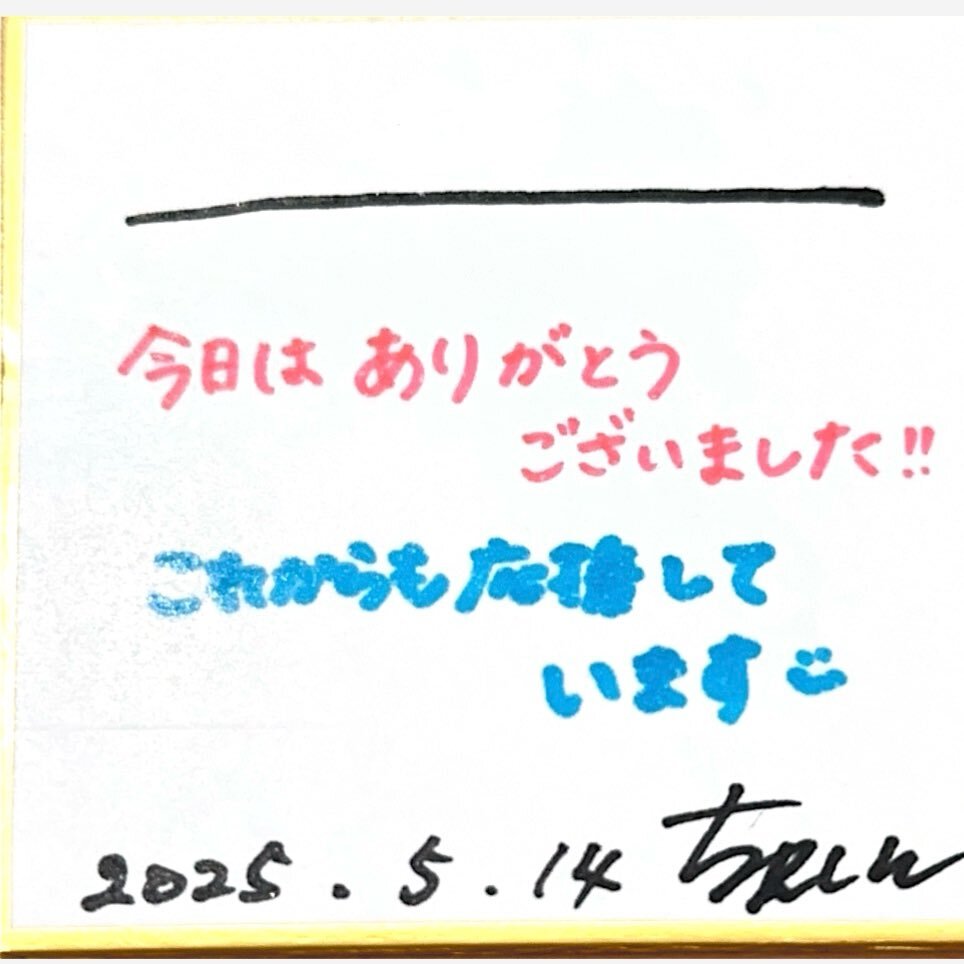 今日は ありがとう
ございました!!
これからも応援して
います
2025.5.14